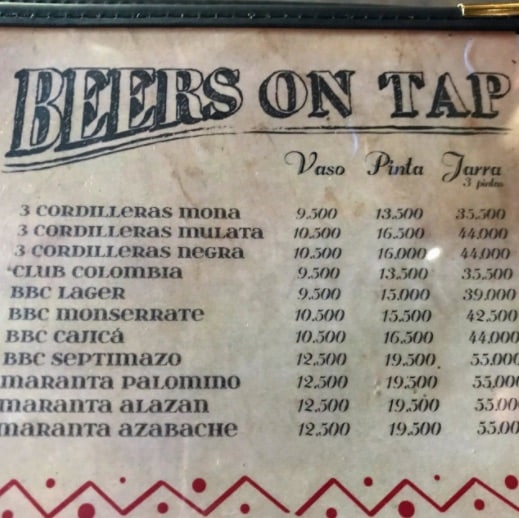 BEERS ON TAP
Vaso Pinta Jarra
3 pintas
3 CORDILLERAS MONA 9.500 13.500 35.500
3 CORDILLERAS MULATA 10.500 16.500 44.000
3 CORDILLERAS NEGRA 10.500 16.000 44.000
CLUB COLOMBIA 9.500 13.500 35.500
BBC LAGER 9.500 15.000 39.000
BBC MONSERRATE 10.500 15.500 42.500
BBC CAJICÁ 10.500 16.500 44.000
BBC SEPTIMAZO 12.500 19.500 55.000
MARANTA PALOMINO 12.500 19.500 55.000
MARANTA ALAZAN 12.500 19.500 55.00
MARANTA AZABACHE 12.500 19.500 55.00